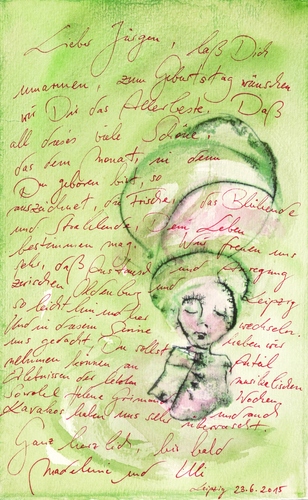 Lieber Jürgen, laß Dich
umarmen, zum Geburtstag wünschen
wir Dir das Allerbeste. Daß
all dieses viele Schöne,
das dem Monat, in dem
Du geboren bist, so
auszeichnet, die Frische, das Blühende
und Strahlende, Dein Leben
bestimmen mag. Wir freuen uns
sehr, daß Austausch und
zwischen Oldenburg und Leipzig
so leicht hin und her wechseln.
Und in diesem Sinne haben wir
uns gedacht, Du sollst Anteil
nehmen können an musikalischen
Erlebnissen der letzten Wochen,
sowohl Helene Grimaud
haben uns sehr überrascht.
Ganz herzlich, bis bald
Madeleine und Uli
Leipzig 23.6.2015